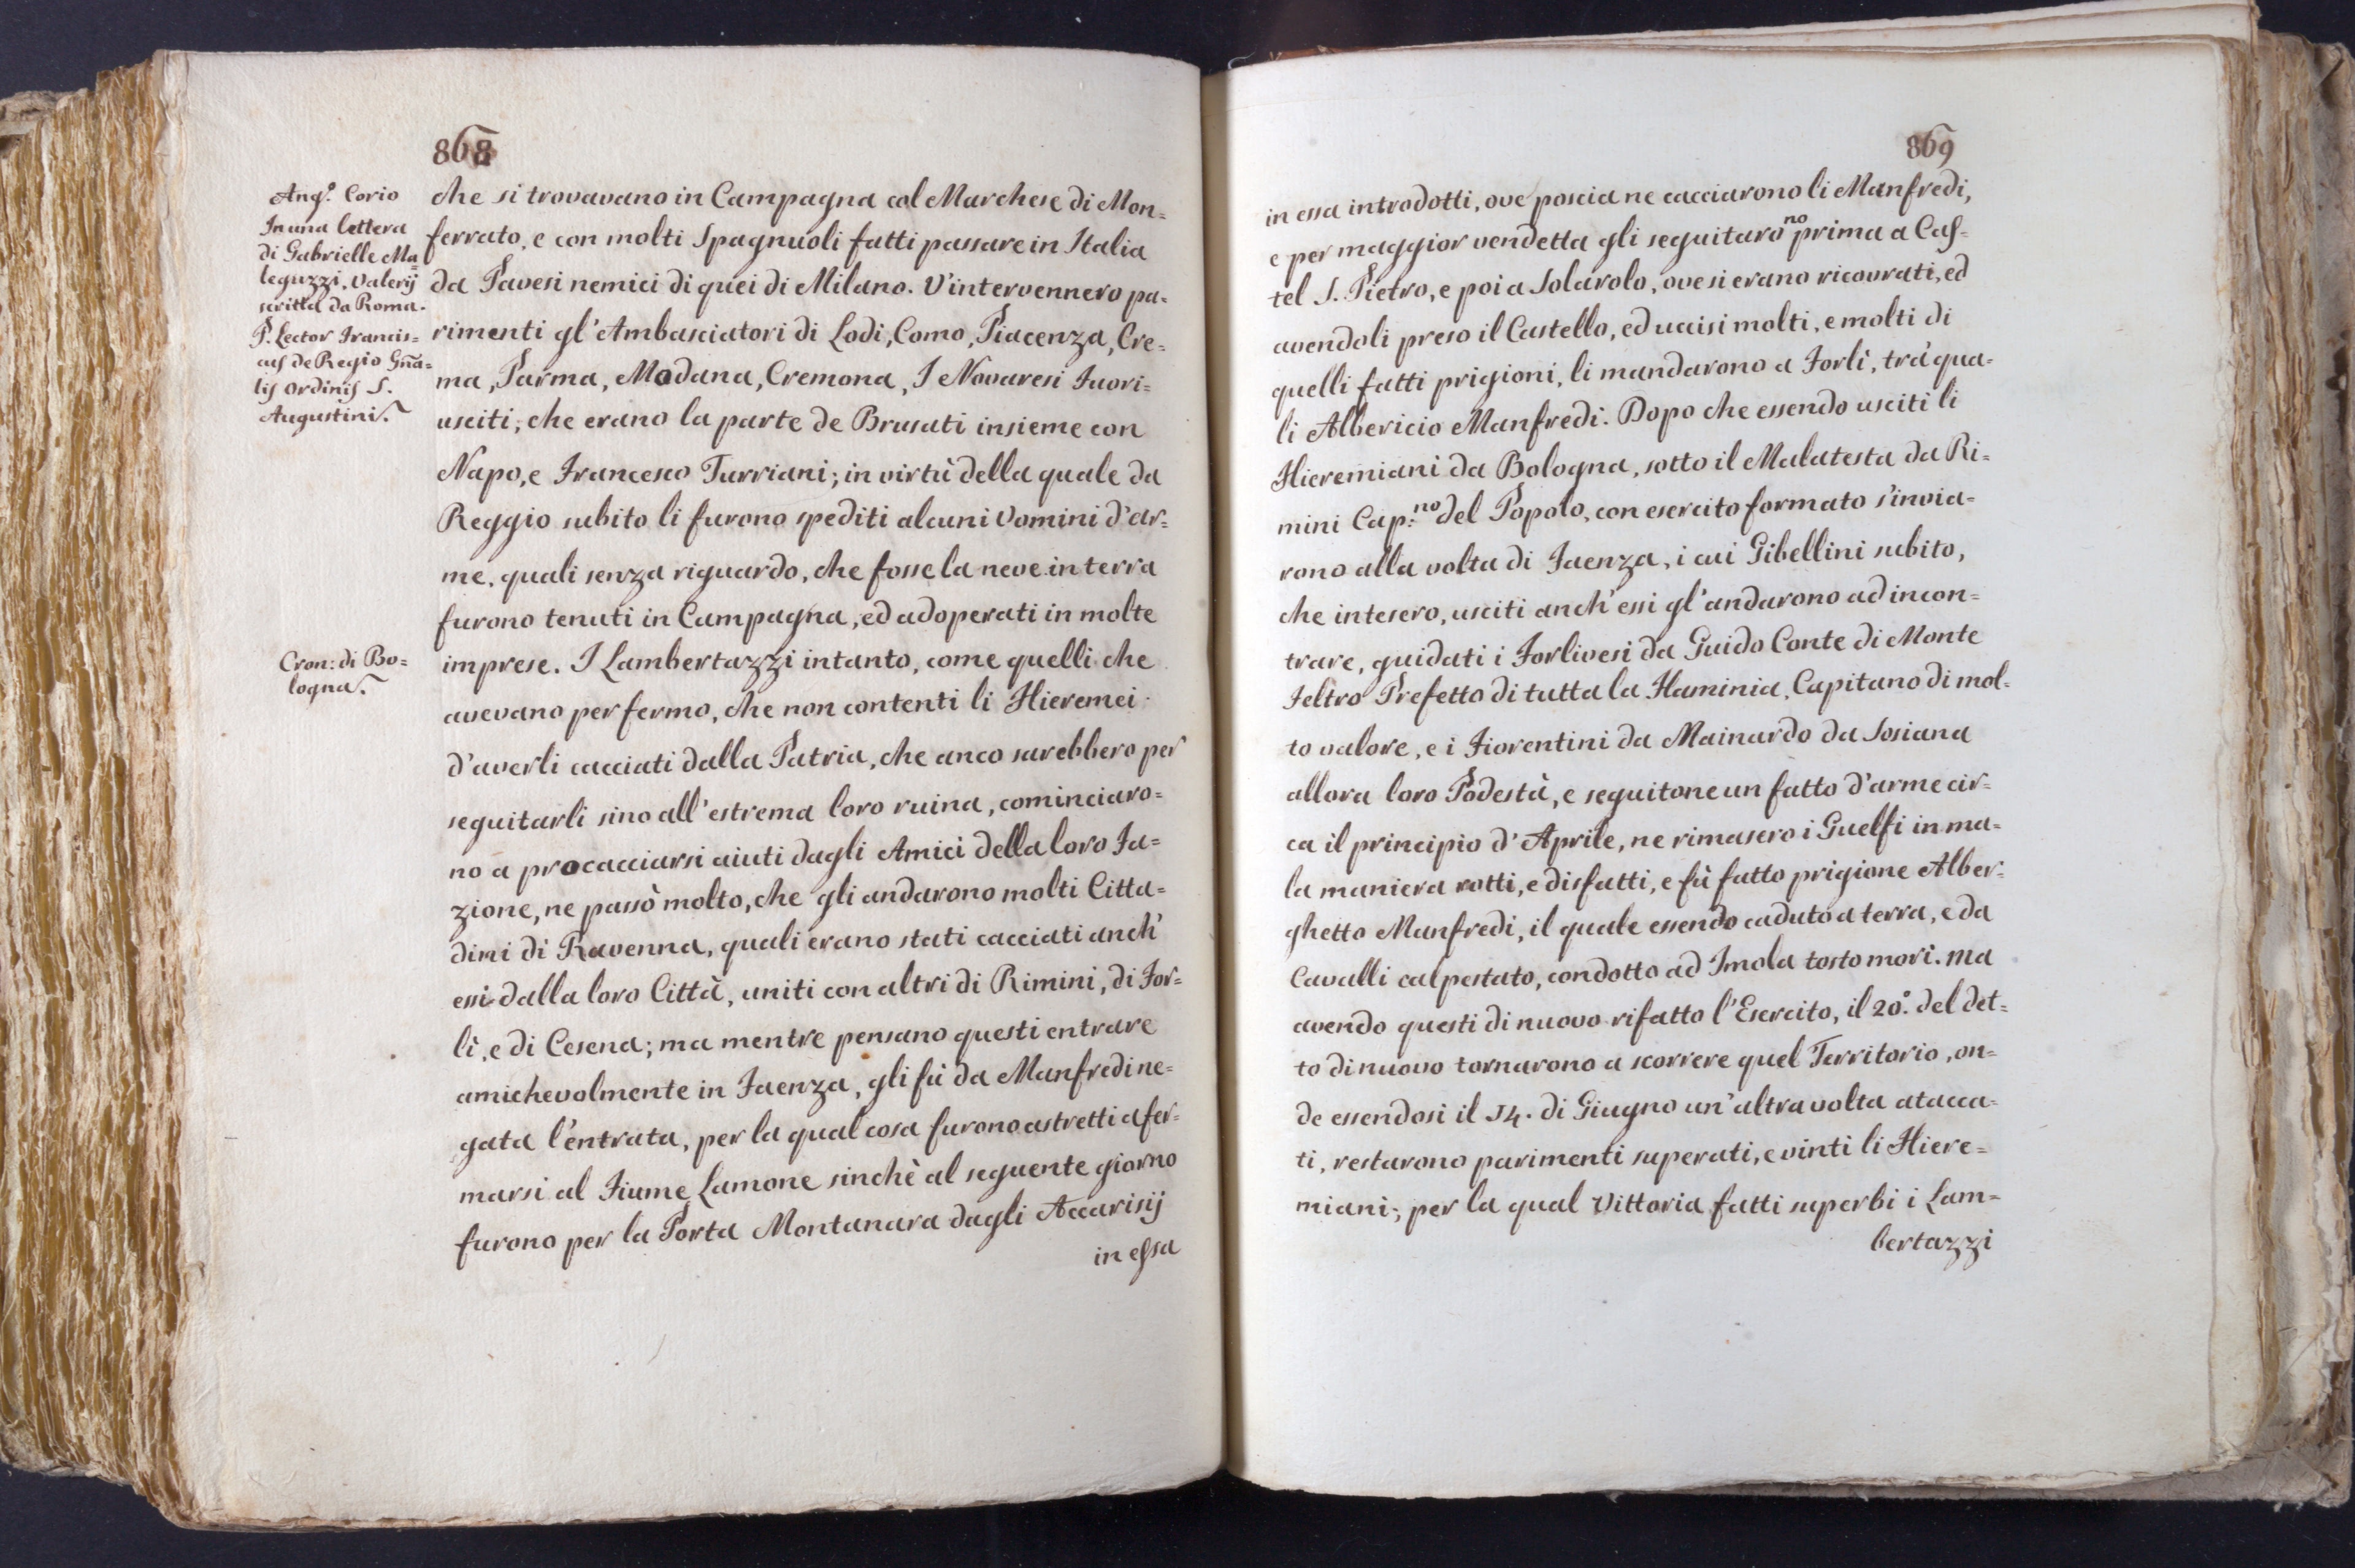 868
Ang.º Corio
In una lettera
di Gabrielle Ma=
leguzzi, Valerij
scritta da Roma.
P. Lector Francis=
cus de Regio Gña=
lis ordinis S.
Augustini.
che si trovavano in Campagna col Marchese di Mon=
ferrato, e con molti Spagnuoli fatti passare in Italia
da Pavesi nemici di quei di Milano. V'intervennero pa=
rimenti gl'Ambasciatori di Lodi, Como, Piacenza, Cre=
ma, Parma, Modana, Cremona, I Novaresi Fuori=
usciti; che erano la parte de Brusati insieme con
Napo, e Francesco Turriani; in virtù della quale da
Reggio subito li furono spediti alcuni Vomini d'ar=
me, quali senza riguardo, che fosse la neve in terra
furono tenuti in Campagna, ed adoperati in molte
Cron: di Bo=
logna.
imprese. I Lambertazzi intanto, come quelli che
avevano per fermo, che non contenti li Hieremei
d'averli cacciati dalla Patria, che anco sarebbero per
seguitarli sino all'estrema loro ruina, cominciaro=
no a procacciarsi aiuti dagli Amici della loro Fa=
zione, ne passò molto, che gli andarono molti Citta=
dini di Ravenna, quali erano stati cacciati anch'
essi dalla loro Città, uniti con altri di Rimini, di For=
lì, e di Cesena; ma mentre pensano questi entrare
amichevolmente in Faenza, gli fù da Manfredi ne=
gata l'entrata, per la qual cosa furono astretti a fer=
marsi al Fiume Lamone sinchè al seguente giorno
furono per la Porta Montanara dagli Accarisij
in essa
869
in essa introdotti, ove poscia ne cacciarono li Manfredi,
e per maggior vendetta gli seguitaro^no prima a Cas=
tel S. Pietro, e poi a Solarolo, ove si erano ricovrati, ed
avendoli preso il Castello, ed uccisi molti, e molti di
quelli fatti prigioni, li mandarono a Forlì, trà qua=
li Albericio Manfredi. Dopo che essendo usciti li
Hieremiani da Bologna, sotto il Malatesta da Ri=
mini Cap:no del Popolo, con esercito formato s'invia=
rono alla volta di Faenza, i cui Gibellini subito,
che intesero, usciti anch'essi gl'andarono ad incon=
trare, guidati i Forlivesi da Guido Conte di Monte
Feltro Prefetto di tutta la Flaminia, Capitano di mol=
to valore, e i Fiorentini da Mainardo da Sosiana
allora loro Podestà, e seguitone un fatto d'arme cir=
ca il principio d'Aprile, ne rimasero i Guelfi in ma=
la maniera rotti, e disfatti, e fù fatto prigione Alber=
ghetto Manfredi, il quale essendo caduto a terra, e da
Cavalli calpestato, condotto ad Imola tosto morì. ma
avendo questi di nuovo rifatto l'Esercito, il 20.º del det=
to di nuovo tornarono a scorrere quel Territorio, on=
de essendosi il 14. di Giugno un'altra volta atacca=
ti, restarono parimenti superati, e vinti li Hiere=
miani; per la qual Vittoria fatti superbi i Lam=
bertazzi